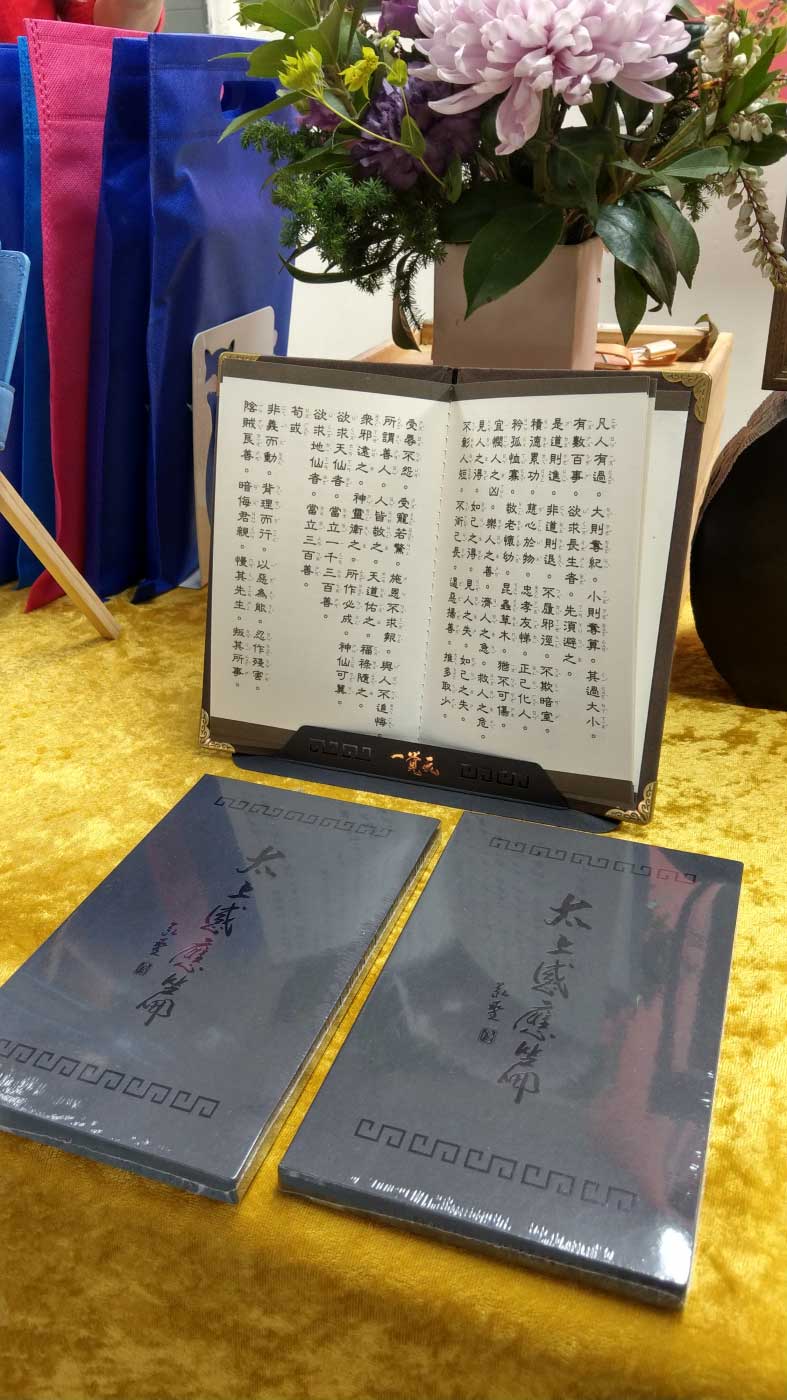 凡人有過。大則奪紀。小則奪算。其過大小。
有數百事。欲求長生者。先須避之。
是道則進。非道則退。不履邪徑。不欺暗室。
積德累功。慈心於物。忠孝友悌。正己化人。
矜孤恤寡。敬老懷幼。昆蟲草木。猶不可傷。
宜憫人之凶。樂人之善。濟人之急。救人之危。
見人之得。如己之得。見人之失。如己之失。
不彰人短。不衒己長。遏惡揚善。推多取少。
受辱不怨。受寵若驚。施恩不求報。與人不追悔。
所謂善人。人皆敬之。天道佑之。福祿隨之。
眾邪遠之。神靈衛之。所作必成。神仙可冀。
欲求天仙者。當立一千三百善。
欲求地仙者。當立三百善。
苟或
非義而動。背理而行。以惡為能。忍作殘害。
陰賊良善。暗侮君親。慢其先生。叛其所事。
一覺元
太上感應篇
太上感應篇